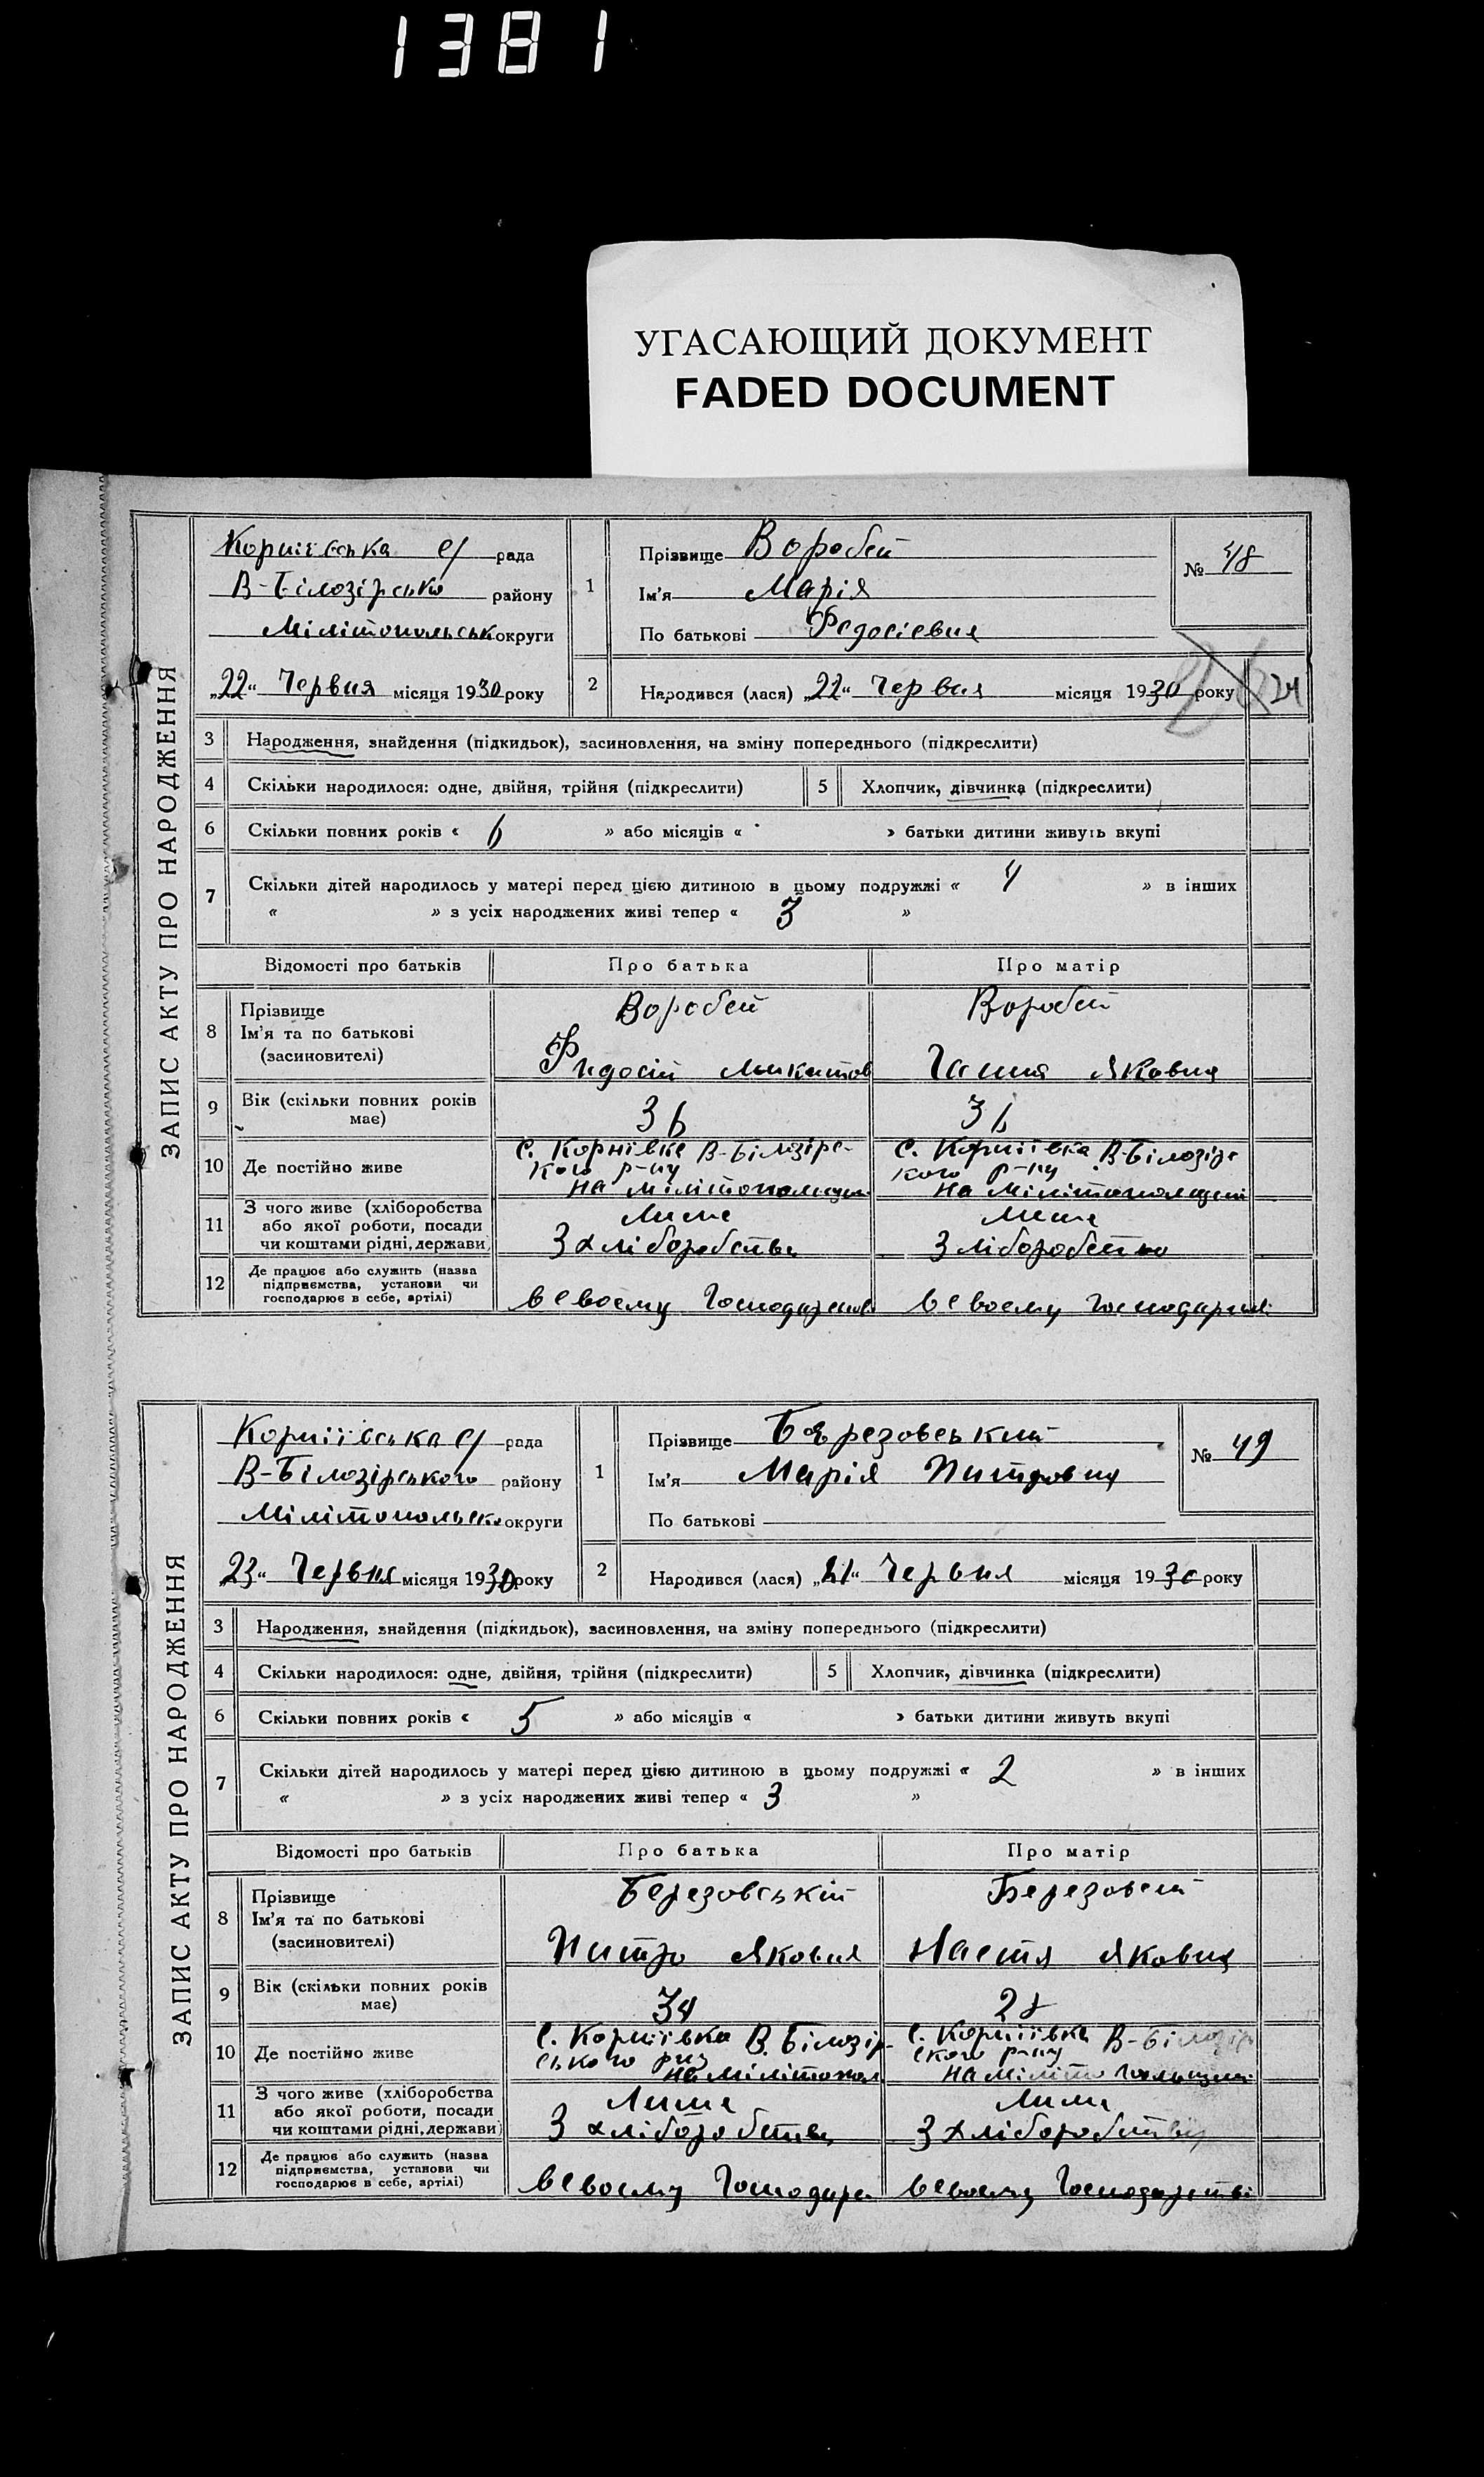 1381
УГАСАЮЩИЙ ДОКУМЕНТ
FADED DOCUMENT
ЗАПИС АКТУ ПРО НАРОДЖЕННЯ
Корніївська с/ рада
В-Білозірсько району
Мілітопольськ округи
„22“ Червня місяця 1930 року
1
Прізвище Воробей
Ім'я Марія
По батькові Федосіевня
№ 48
2
Народився (лася) „22“ Червня місяця 1930 року
24
3 Народження, знайдення (підкидьок), засиновлення, на зміну попереднього (підкреслити)
4 Скільки народилося: одне, двійня, трійня (підкреслити) 5 Хлопчик, дівчинка (підкреслити)
6 Скільки повних років « 6 » або місяців « » батьки дитини живуть вкупі
7 Скільки дітей народилось у матері перед цією дитиною в цьому подружжі « 4 » в інших
« » з усіх народжених живі тепер « 3 »
Відомості про батьків Про батька Про матір
8 Прізвище
Ім'я та по батькові
(засиновителі)
Воробей
Фидосій Микитов
Воробей
Ганна Яковня
9 Вік (скільки повних років
має)
36
36
10 Де постійно живе
С. Корнівка В-Білозірс-
кого р-ну
на Мілітополщин
С. Корніївка В-Білозірс
кого р-ну
на Мілітополщині
11 З чого живе (хліборобства
або якої роботи, посади
чи коштами рідні, держави)
Лише
З хліборобства
Лише
З ліборобство
12 Де працює або служить (назва
підприємства, установи чи
господарює в себе, артілі)
в своему Господарстві
в своему Господарстві
ЗАПИС АКТУ ПРО НАРОДЖЕННЯ
Корніївська с/ рада
В-Білозірського району
Мілітопольсько округи
„23“ Червня місяця 1930 року
1
Прізвище Березовський
Ім'я Марія Питровня
По батькові
№ 49
2
Народився (лася) „21“ Червня місяця 1930 року
3 Народження, знайдення (підкидьок), засиновлення, на зміну попереднього (підкреслити)
4 Скільки народилося: одне, двійня, трійня (підкреслити) 5 Хлопчик, дівчинка (підкреслити)
6 Скільки повних років « 5 » або місяців « » батьки дитини живуть вкупі
7 Скільки дітей народилось у матері перед цією дитиною в цьому подружжі « 2 » в інших
« » з усіх народжених живі тепер « 3 »
Відомості про батьків Про батька Про матір
8 Прізвище
Ім'я та по батькові
(засиновителі)
Березовській
Питро Яковня
Березовсй
Настя Яковня
9 Вік (скільки повних років
має)
34
28
10 Де постійно живе
С. Корніївка В. Білозір-
ського
на Мілітопол
С. Корніївка В-Білозір
ского р-ну
на Мілітопольщині
11 З чого живе (хліборобства
або якої роботи, посади
чи коштами рідні, держави)
Лише
З хліборобства
Лише
З хліборобства
12 Де працює або служить (назва
підприємства, установи чи
господарює в себе, артілі)
в своему Господарс
в своему Господарстві